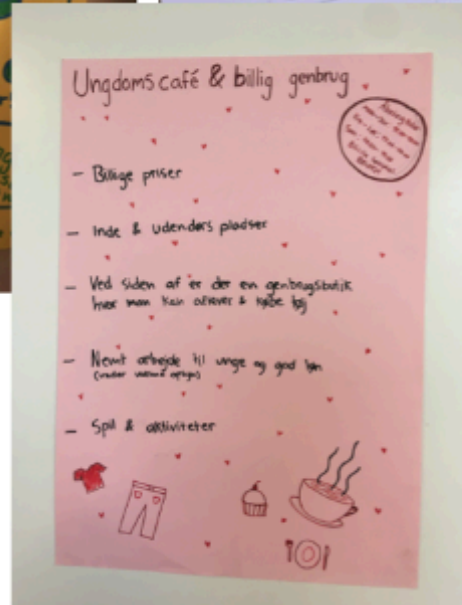 Ungdomscafé & billig genbrug
- Billige priser
- Inde & udendørs pladser
- Ved siden af er der en genbrugsbutik
hvor man kan aflever & købe tøj
- Nemt arbejde til unge og god løn
- Spil & aktiviteter